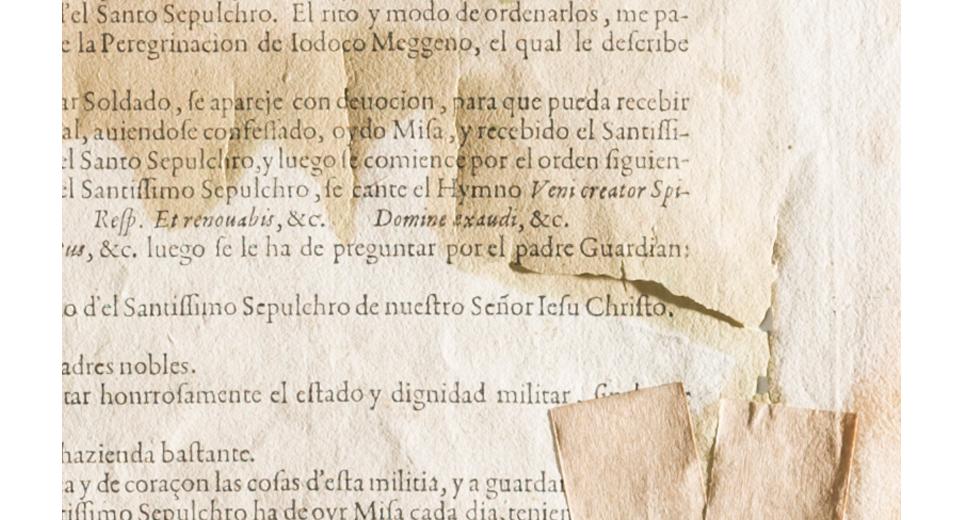 d'el Santo Sepulchro. El rito y modo de ordenarlos, me pa-
e la Peregrinacion de Iodoco Meggeno, el qual le deſcribe
ar Soldado, ſe apareje con deuocion, para que pueda recebir
al, auiendoſe confeſſado, oydo Miſa, y recebido el Santiſſi-
el Santo Sepulchro, y luego ſe comience por el orden ſiguien-
el Santiſſimo Sepulchro, ſe cante el Hymno Veni creator Spi-
Reſp. Et renouabis, &c. Domine exaudi, &c.
us, &c. luego ſe le ha de preguntar por el padre Guardian:
o d'el Santiſſimo Sepulchro de nueſtro Señor Ieſu Chriſto.
adres nobles.
tar honrroſamente el eſtado y dignidad militar,
hazienda baſtante.
a y de coraçon las coſas d'eſta militia, y a guardar
tiſſimo Sepulchro ha de oyr Miſa cada dia, tenien